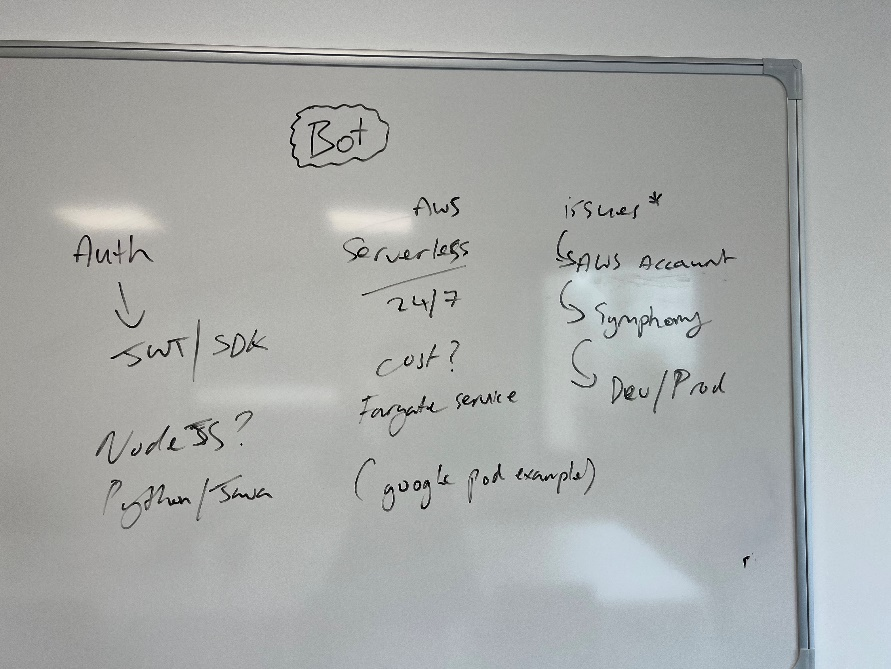 Bot
Auth
JWT/SDK
NodeJS?
Python/Java
AWS
Serverless
24/7
cost?
Fargate service
(google pod example)
issues*
AWS Account
Symphony
Dev/Prod